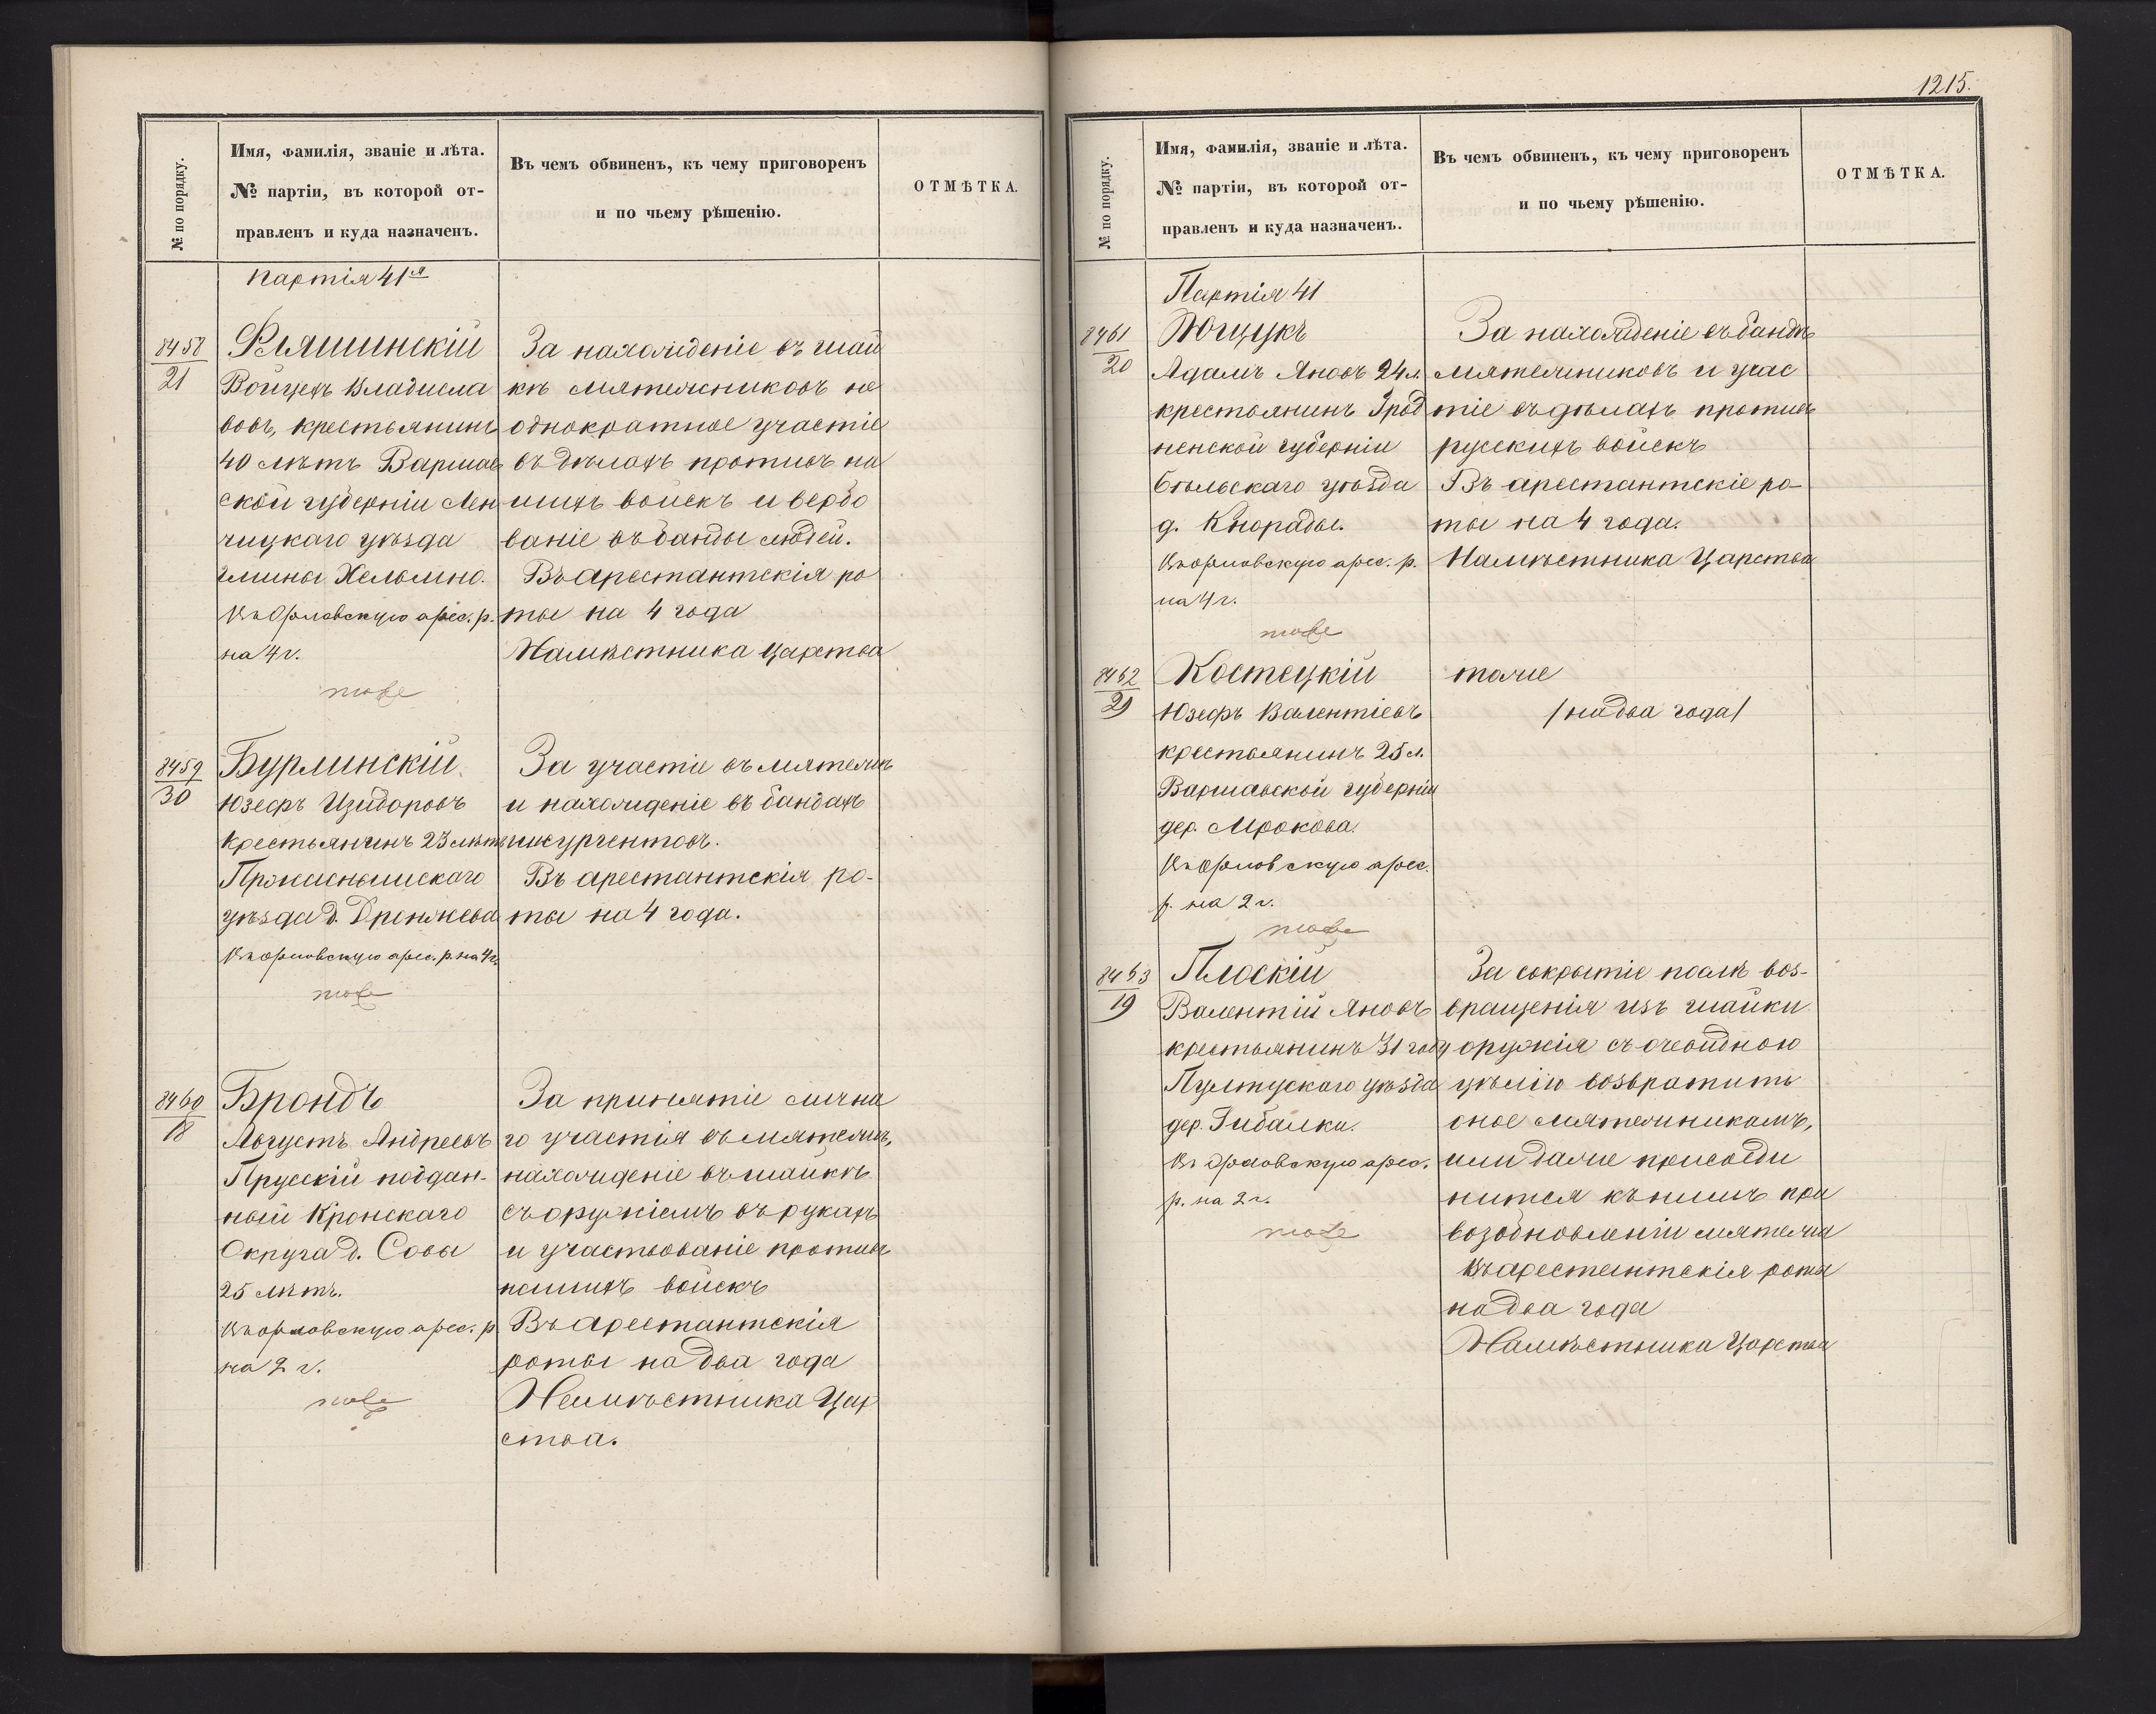 № по порядку.
Имя, фамилія, званіе и лѣта.
№ партіи, въ которой от-
правленъ и куда назначенъ.
Въ чемъ обвиненъ, къ чему приговоренъ
и по чьему рѣшенію.
ОТМѢТКА.
Партія 41я
8458
21
Фляшинскій
Войцехъ Владисла
вовъ, крестьянинъ
40 лѣтъ Варшав
ской губерніи Лен
чицкаго уѣзда
гмины Хельмно.
Въ Орловскую арес. р.
на 4 г.
тоже
За нахожденіе въ шай
кѣ мятежниковъ не
однократное участіе
въ дѣлахъ противъ на
шихъ войскъ и вербо
ваніе въ банды людей.
Въ арестантскія ро
ты на 4 года
Намѣстника Царства
8459
30
Бурлинскій
Юзефъ Изидоровъ
Крестьянинъ 23 лѣтъ
Пржаснышскаго
уѣзда д. Дренжева
Въ орловскую арес. р. на 4 г.
тоже
За участіе въ мятежѣ
и нахожденіе въ бандахъ
инсургентовъ.
Въ арестантскія ро-
ты на 4 года.
8460
18
Брондъ
Августъ Андреевъ
Прусскій поддан-
ный Кронскаго
Округа д. Совы
25 лѣтъ.
Въ орловскую арес. р
на 2 г.
тоже
За принятіе лична
го участія въ мятежѣ,
нахожденіе въ шайкѣ
съ оружіемъ въ рукахъ
и участвованіе противъ
нашихъ войскъ
Въ арестантскія
роты на два года
Намѣстника Цар
ства.
1215.
№ по порядку.
Имя, фамилія, званіе и лѣта.
№ партіи, въ которой от-
правленъ и куда назначенъ.
Въ чемъ обвиненъ, къ чему приговоренъ
и по чьему рѣшенію.
ОТМѢТКА.
Партія 41
8461
20
Ющукъ
Адамъ Яновъ 24 л.
крестьянинъ Грод
ненской губерніи
Бѣльскаго уѣзда
д. Кнорады.
Въ орловскую арес. р.
на 4 г.
тоже
За нахожденіе въ бандѣ
мятежниковъ и учас
тіе въ дѣлахъ противъ
русскихъ войскъ
Въ арестантскіе ро-
ты на 4 года.
Намѣстника Царства
8462
29
Костецкій
Юзефъ Валентіевъ
крестьянинъ 25 л.
Варшавской губерніи
дер. Мрокова.
Въ орловскую арес.
р. на 2 г.
тоже
тоже
/на два года/
8463
19
Плоскій
Валентій Яновъ
крестьянинъ 31 году
Пултускаго уѣзда
дер. Гибалки.
Въ Орловскую арес.
р. на 2 г.
тоже
За сокрытіе послѣ воз-
вращенія изъ шайки
оружія съ очевидною
цѣлію возвратить
оное мятежникамъ,
или даже присоеди
нится къ нимъ при
возобновленіи мятежа
Въ арестантскія роты
на два года
Намѣстника Царства